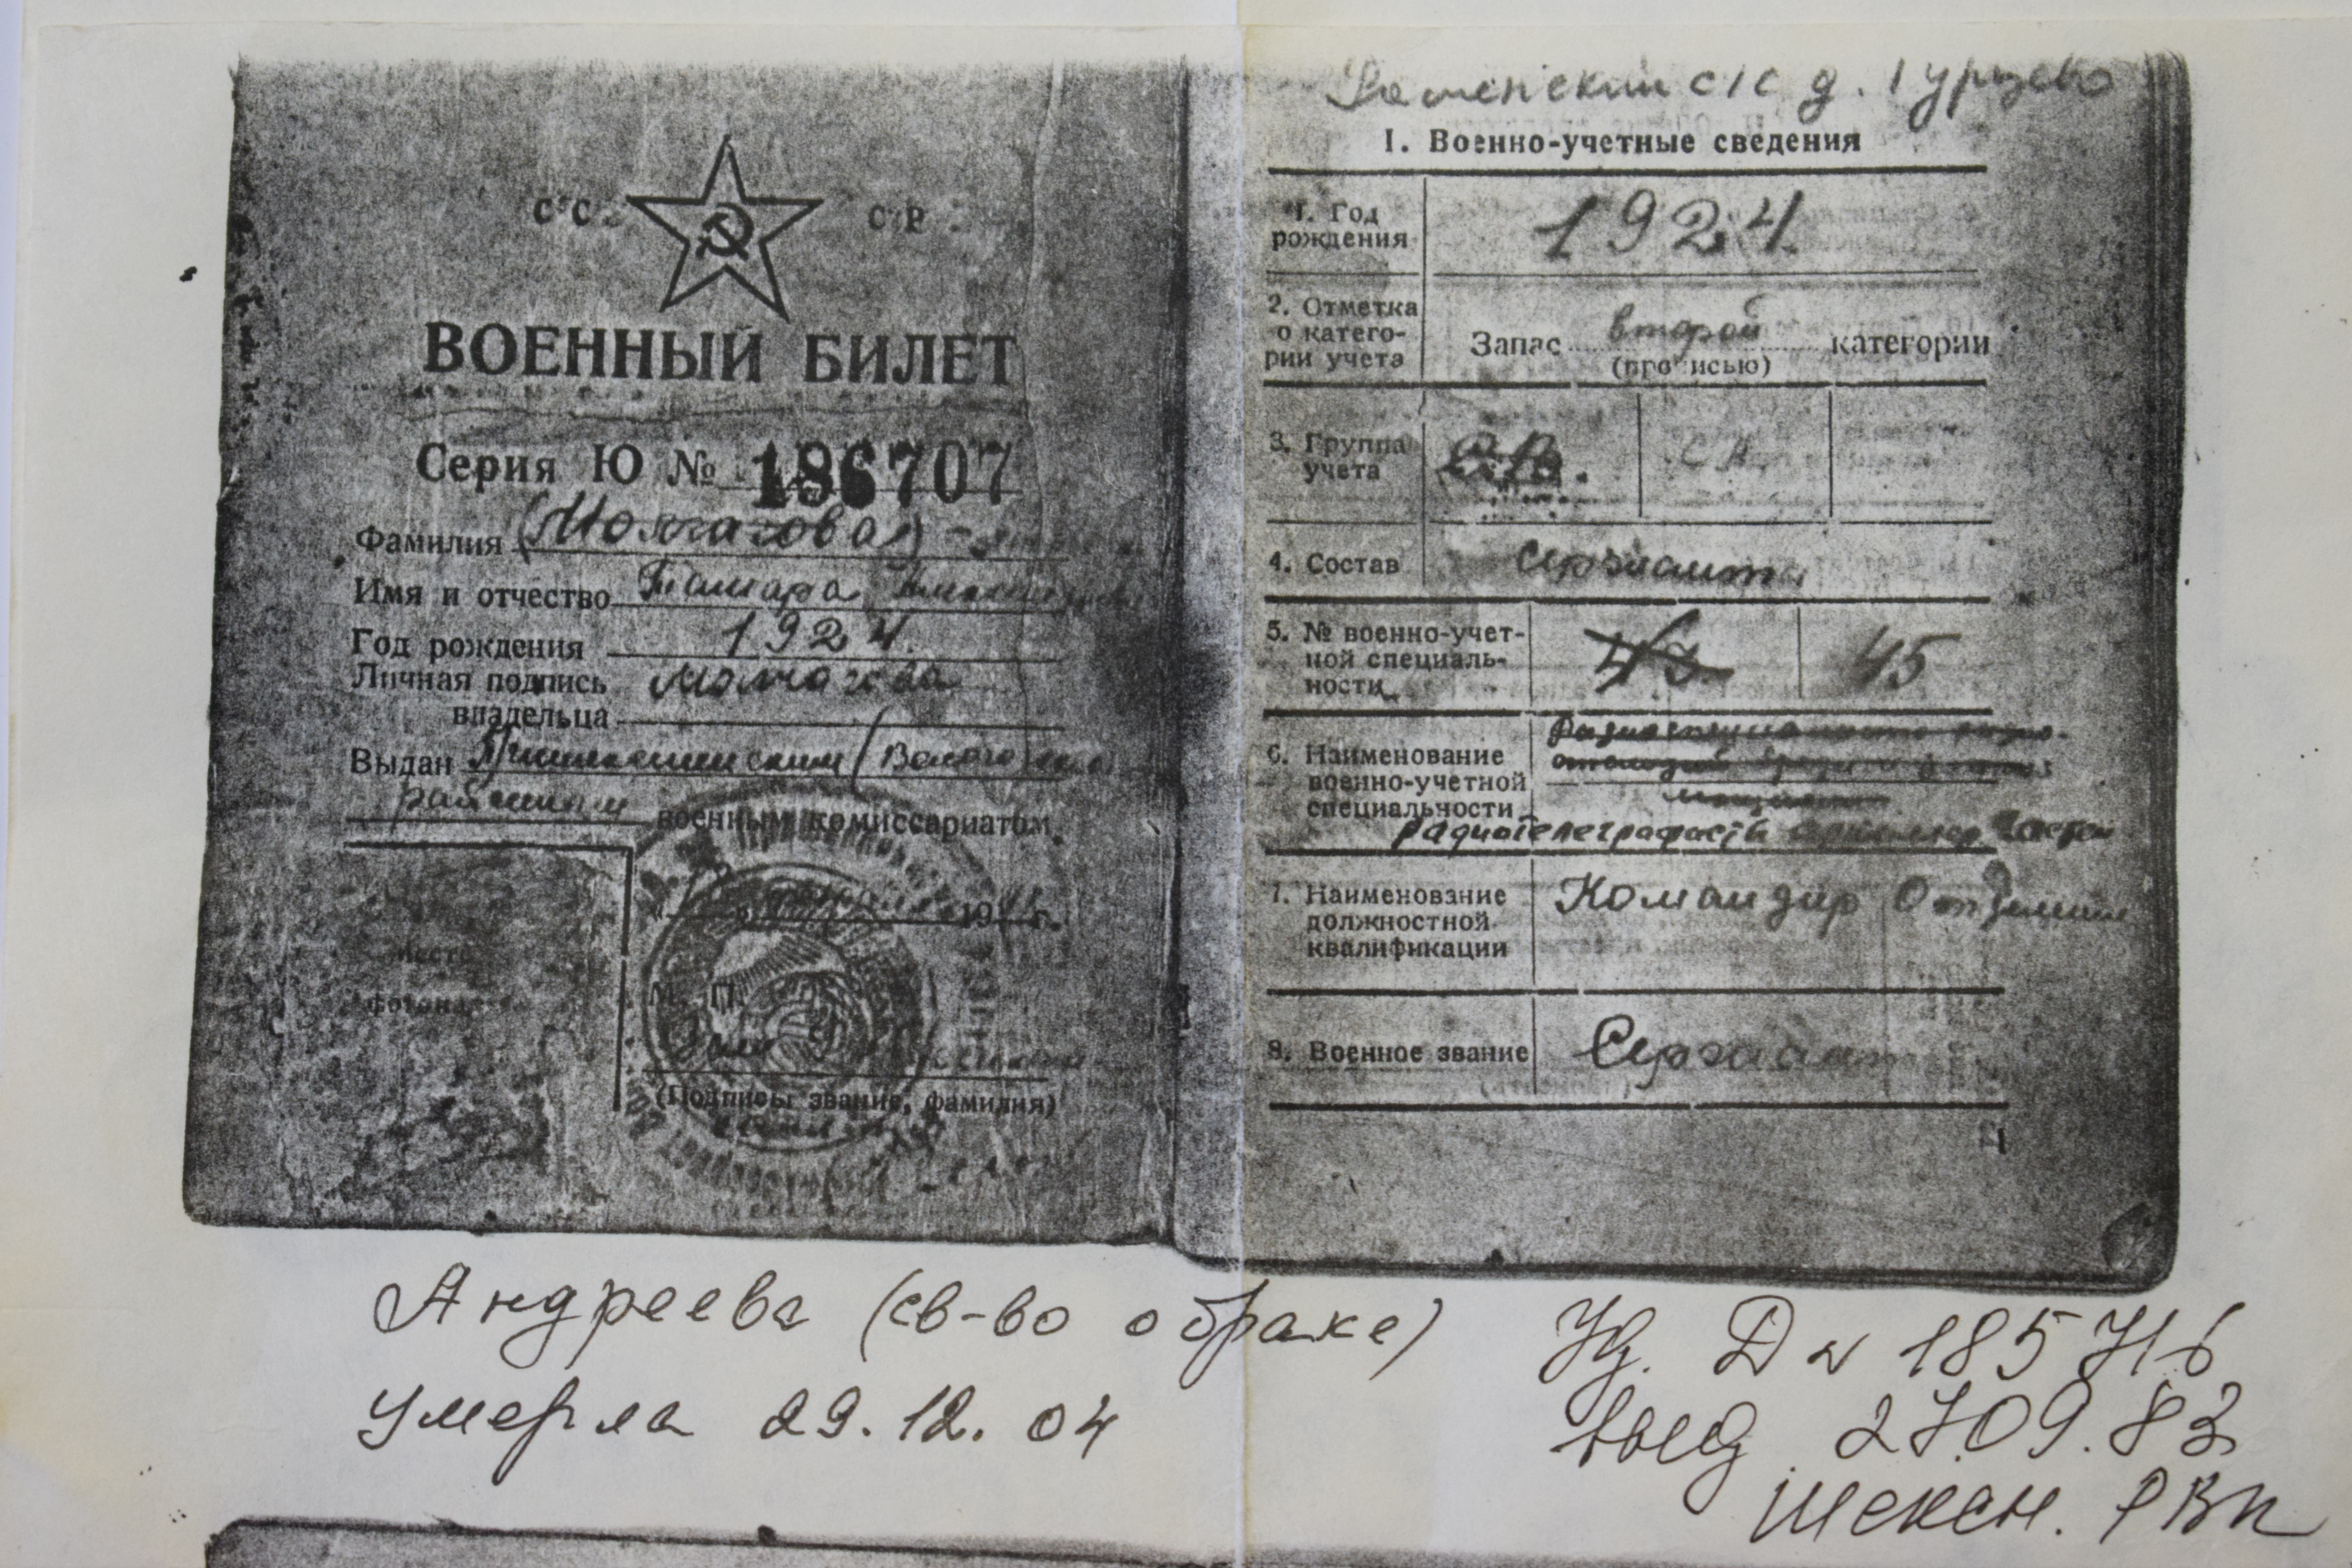 СССР
ВОЕННЫЙ БИЛЕТ
Серия Ю № 186707
Фамилия
Имя и отчество Тамара
Год рождения 1924
Личная подпись
владельца
Выдан
районным военным комиссариатом
19 г.
место
М. П.
(Подпись, звание, фамилия)
с/с д. Гурцево
I. Военно-учетные сведения
1. Год рождения 1924
2. Отметка о категории учета Запас второй категории
(прописью)
3. Группа учета
4. Состав Сержанты
5. № военно-учетной специальности 45
6. Наименование военно-учетной специальности
радиотелеграфист частей
7. Наименование должностной квалификации Командир Отделения
8. Военное звание Сержант
Андреева (св-во о браке)
умерла 29.12.04
Уд. Д № 185716
выд 27.09.83
Шексн. РВК